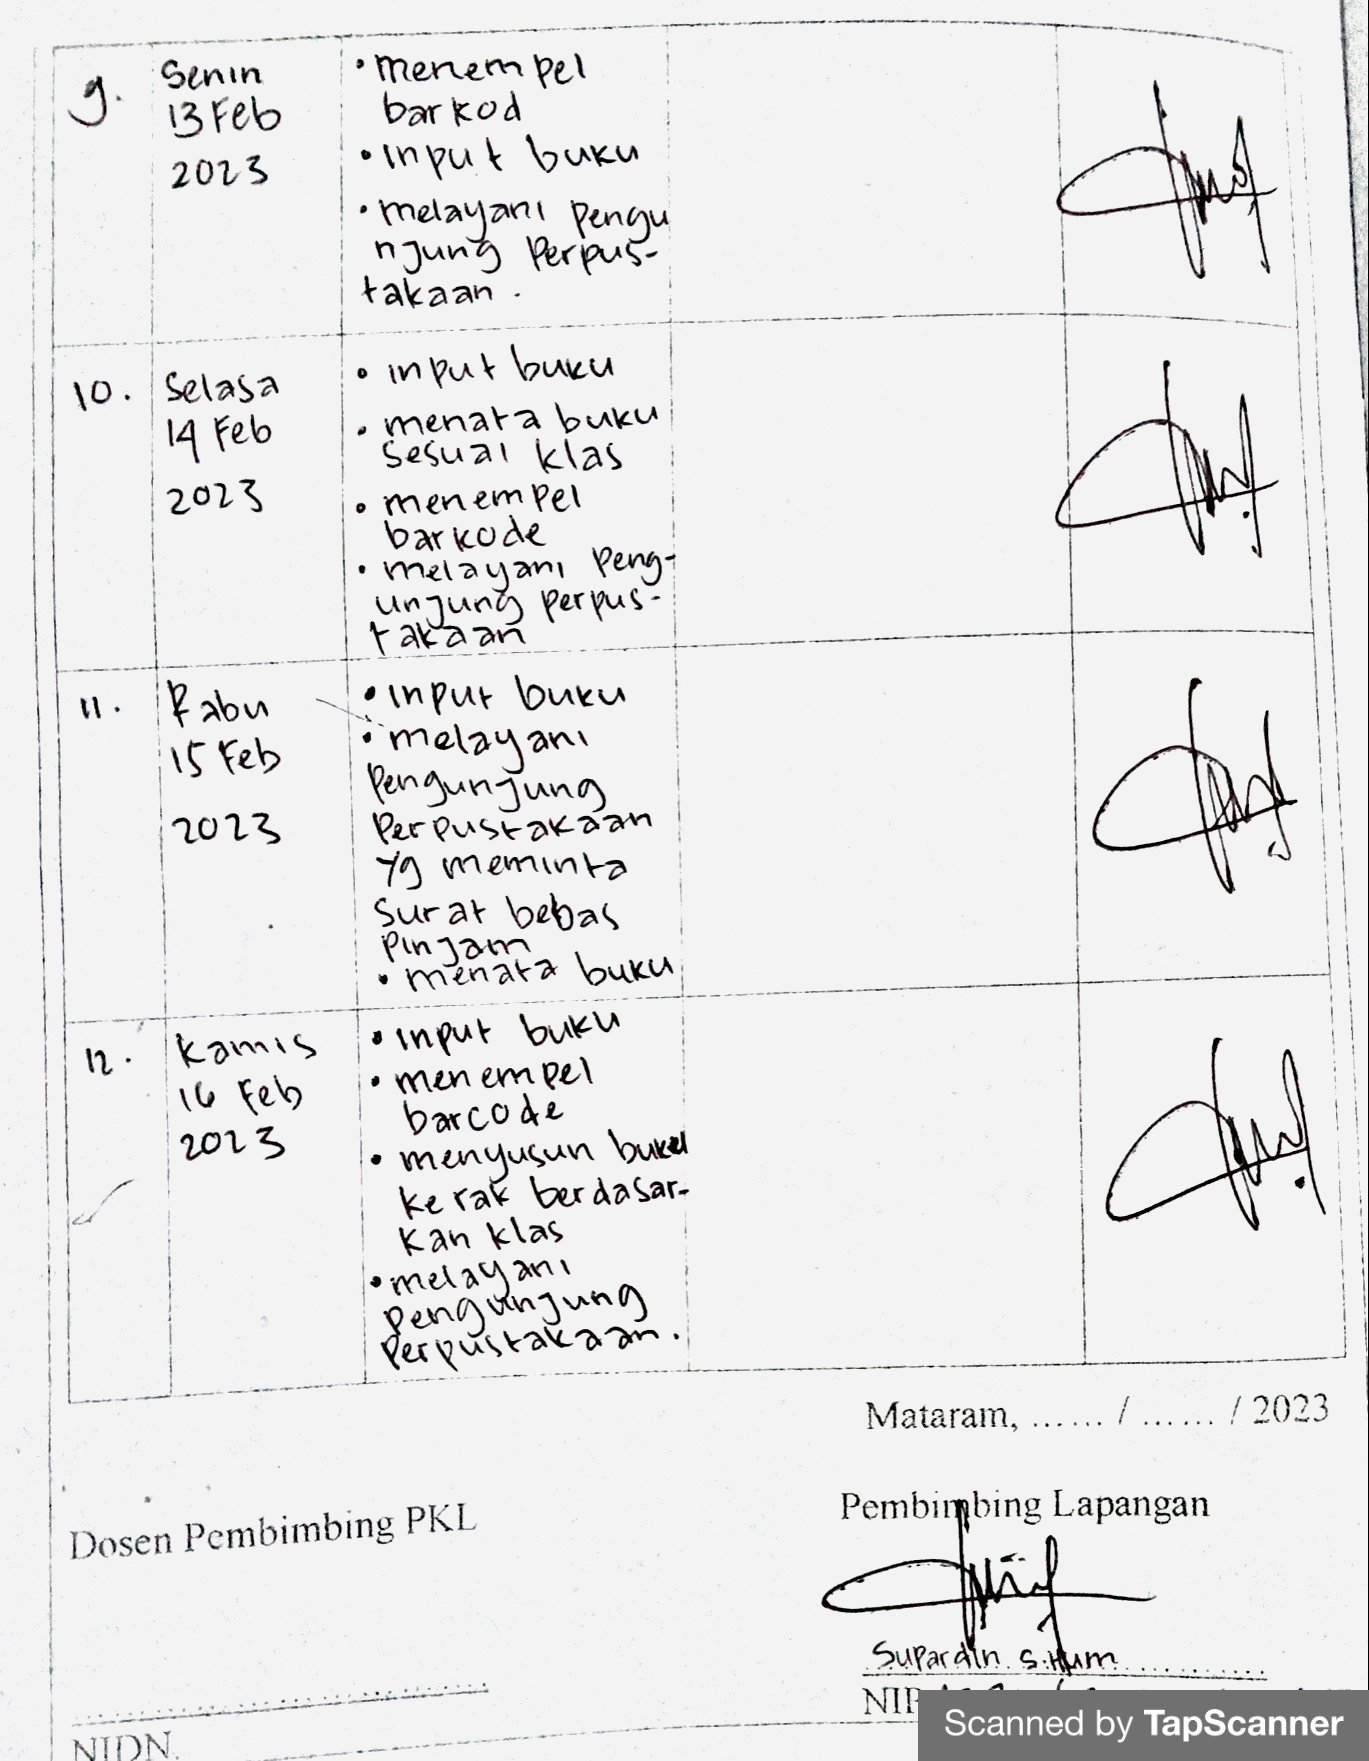 9.
Senin
13 Feb
2023
• menempel
barkod
• input buku
• melayani pengu
njung perpus-
takaan.
10.
Selasa
14 Feb
2023
• input buku
• menata buku
sesuai klas
• menempel
barkode
• melayani peng-
unjung perpus-
takaan
11.
Rabu
15 Feb
2023
• input buku
• melayani
pengunjung
perpustakaan
yg meminta
surat bebas
pinjam
• menata buku
12.
Kamis
16 Feb
2023
• input buku
• menempel
barcode
• menyusun buku
ke rak berdasar-
kan klas
• melayani
pengunjung
perpustakaan.
Mataram, ...... / ...... / 2023
Dosen Pembimbing PKL
Pembimbing Lapangan
Supardin S.Hum
NIP
NIDN.
Scanned by TapScanner